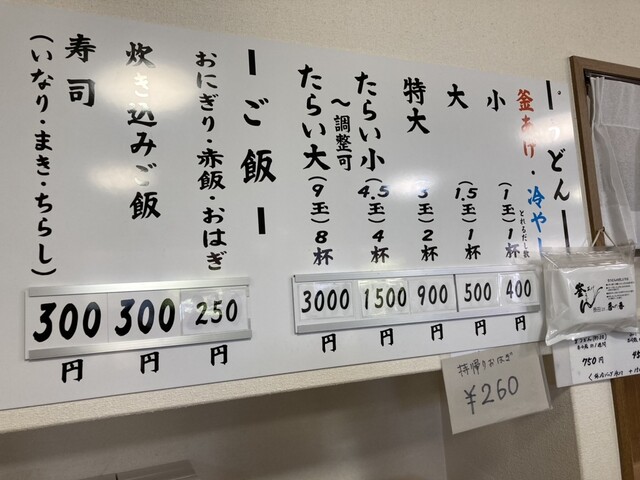 －うどん－
釜あげ・冷やし
とれるだし数
小（1玉）1杯 400円
大（1.5玉）1杯 500円
特大（3玉）2杯 900円
たらい小（4.5玉）4杯 1500円
～調整可
たらい大（9玉）8杯 3000円
－ご飯－
おにぎり・赤飯・おはぎ 250円
炊き込みご飯 300円
寿司（いなり・まき・ちらし） 300円
持帰りおはぎ
¥260
750円